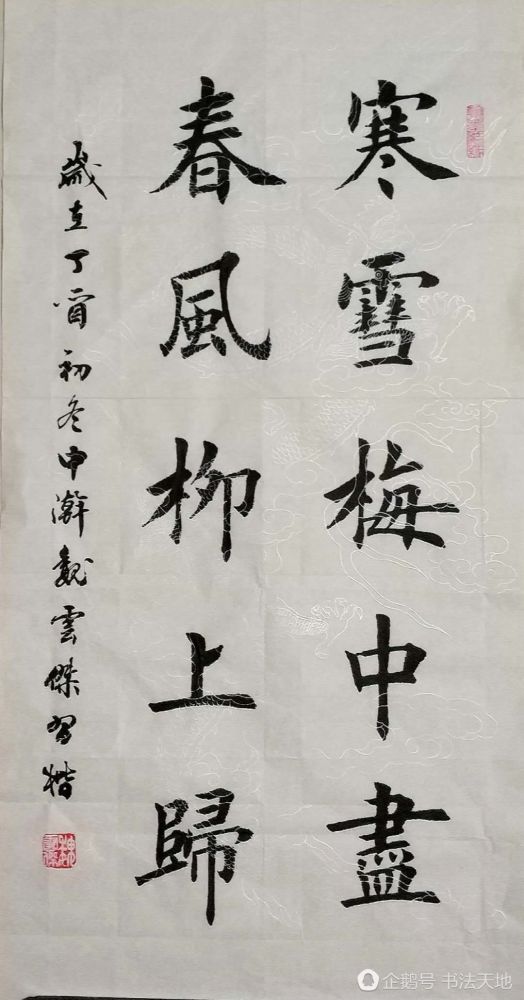 寒雪梅中盡
春風柳上歸
歲在丁酉初冬申滸魏雲傑習楷
企鹅号 书法天地